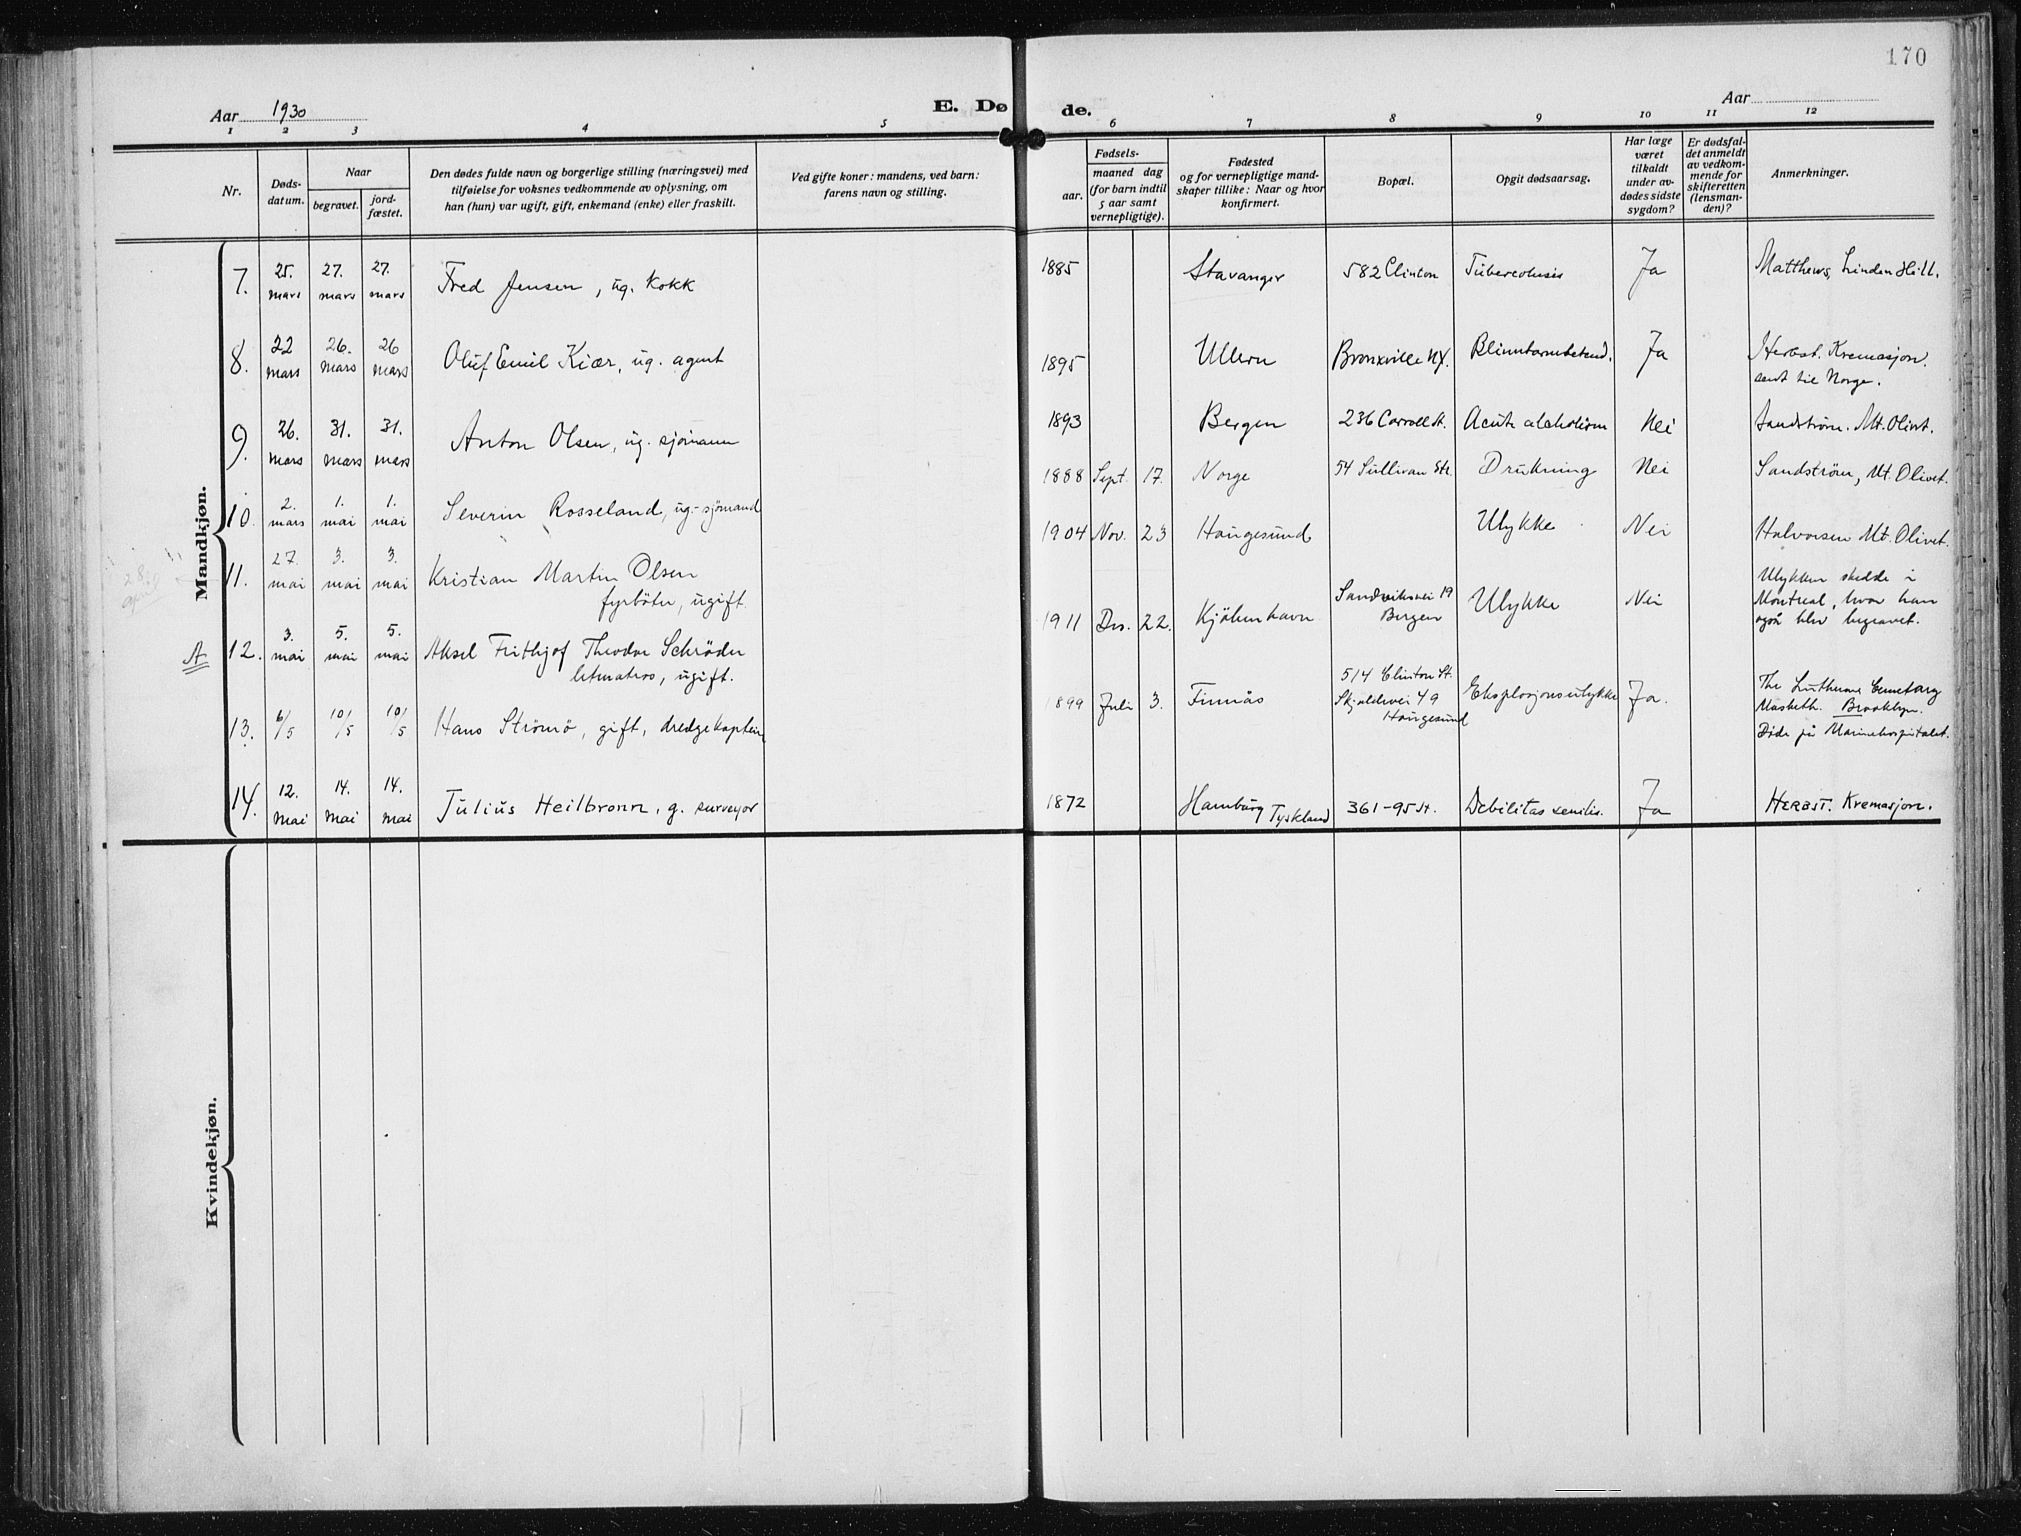 170
Aar 1930
E. Dø de.
Aar
1 2 3 4 5 6 7 8 9 10 11 12
Nr.
Døds-
datum.
Naar
begravet.
jord-
fæstet.
Den dødes fulde navn og borgerlige stilling (næringsvei) med
tilføielse for voksnes vedkommende av oplysning, om
han (hun) var ugift, gift, enkemand (enke) eller fraskilt.
Ved gifte koner: mandens, ved barn:
farens navn og stilling.
Fødsels-
aar.
maaned dag
(for barn indtil
5 aar samt
vernepligtige).
Fødested
og for vernepligtige mand-
skaper tillike: Naar og hvor
konfirmert.
Bopæl.
Opgit dødsaarsag.
Har læge
været
tilkaldt
under av-
dødes sidste
sygdom?
Er dødsfal-
det anmeldt
av vedkom-
mende for
skifteretten
(lensman-
den)?
Anmerkninger.
Mandkjøn.
7. 25. mars 27. mars 27. mars Fred Jensen, ug. kokk 1885 Stavanger 582 Clinton Tuberculosis Ja Matthews, Linden Hill.
8. 22 mars 26. mars 26 mars Oluf Emil Kiær, ug. agent 1895 Ullern Bronxville N.Y. Blinntarmbetend. Ja Herbst. Kremasjon.
sent til Norge.
9. 26. mars 31. mars 31. mars Anton Olsen, ug. sjømann 1893 Bergen 236 Carroll St. Acute alcholism Nei Sandstrøm. Mt. Olivt.
10. 2. mars 1. mai 1. mai Severin Rosseland, ug. sjømand 1888 Sept. 17. Norge 54 Sullivan Str. Drukning Nei Sandstrøm, Mt. Olivet.
28. april
11. 27. mai 3. mai 3. mai Kristian Martin Olsen
fyrböter, ugift. 1904 Nov. 23 Haugesund Ulykke Nei Halvorsen Mt. Olivet.
A 12. 3. mai 5. mai 5. mai Aksel Frithjof Theodor Schröder
letmatros, ugift. 1911 Des. 22. Kjöbenhavn Sandviksvei 19
Bergen Ulykke Nei Ulykken skedde i
Montreal, hvor han
også blev begravet.
13. 6/5 10/5 10/5 Hans Strömö, gift, dredgekaptein 1899 Juli 3. Finnås 514 Clinton St.
Skjoldevei 49
Haugesund Eksplosjonsulykke Ja. The Lutheran Cemetary
Masbeth. Brooklyn.
Døde på Marinehospitalet.
14. 12. mai 14. mai 14. mai Julius Heilbronn, g. surveyor 1872 Hamburg Tyskland 361-95 St. Debilitas senilis. Ja HERBST. Kremasjon.
Kvindekjøn.